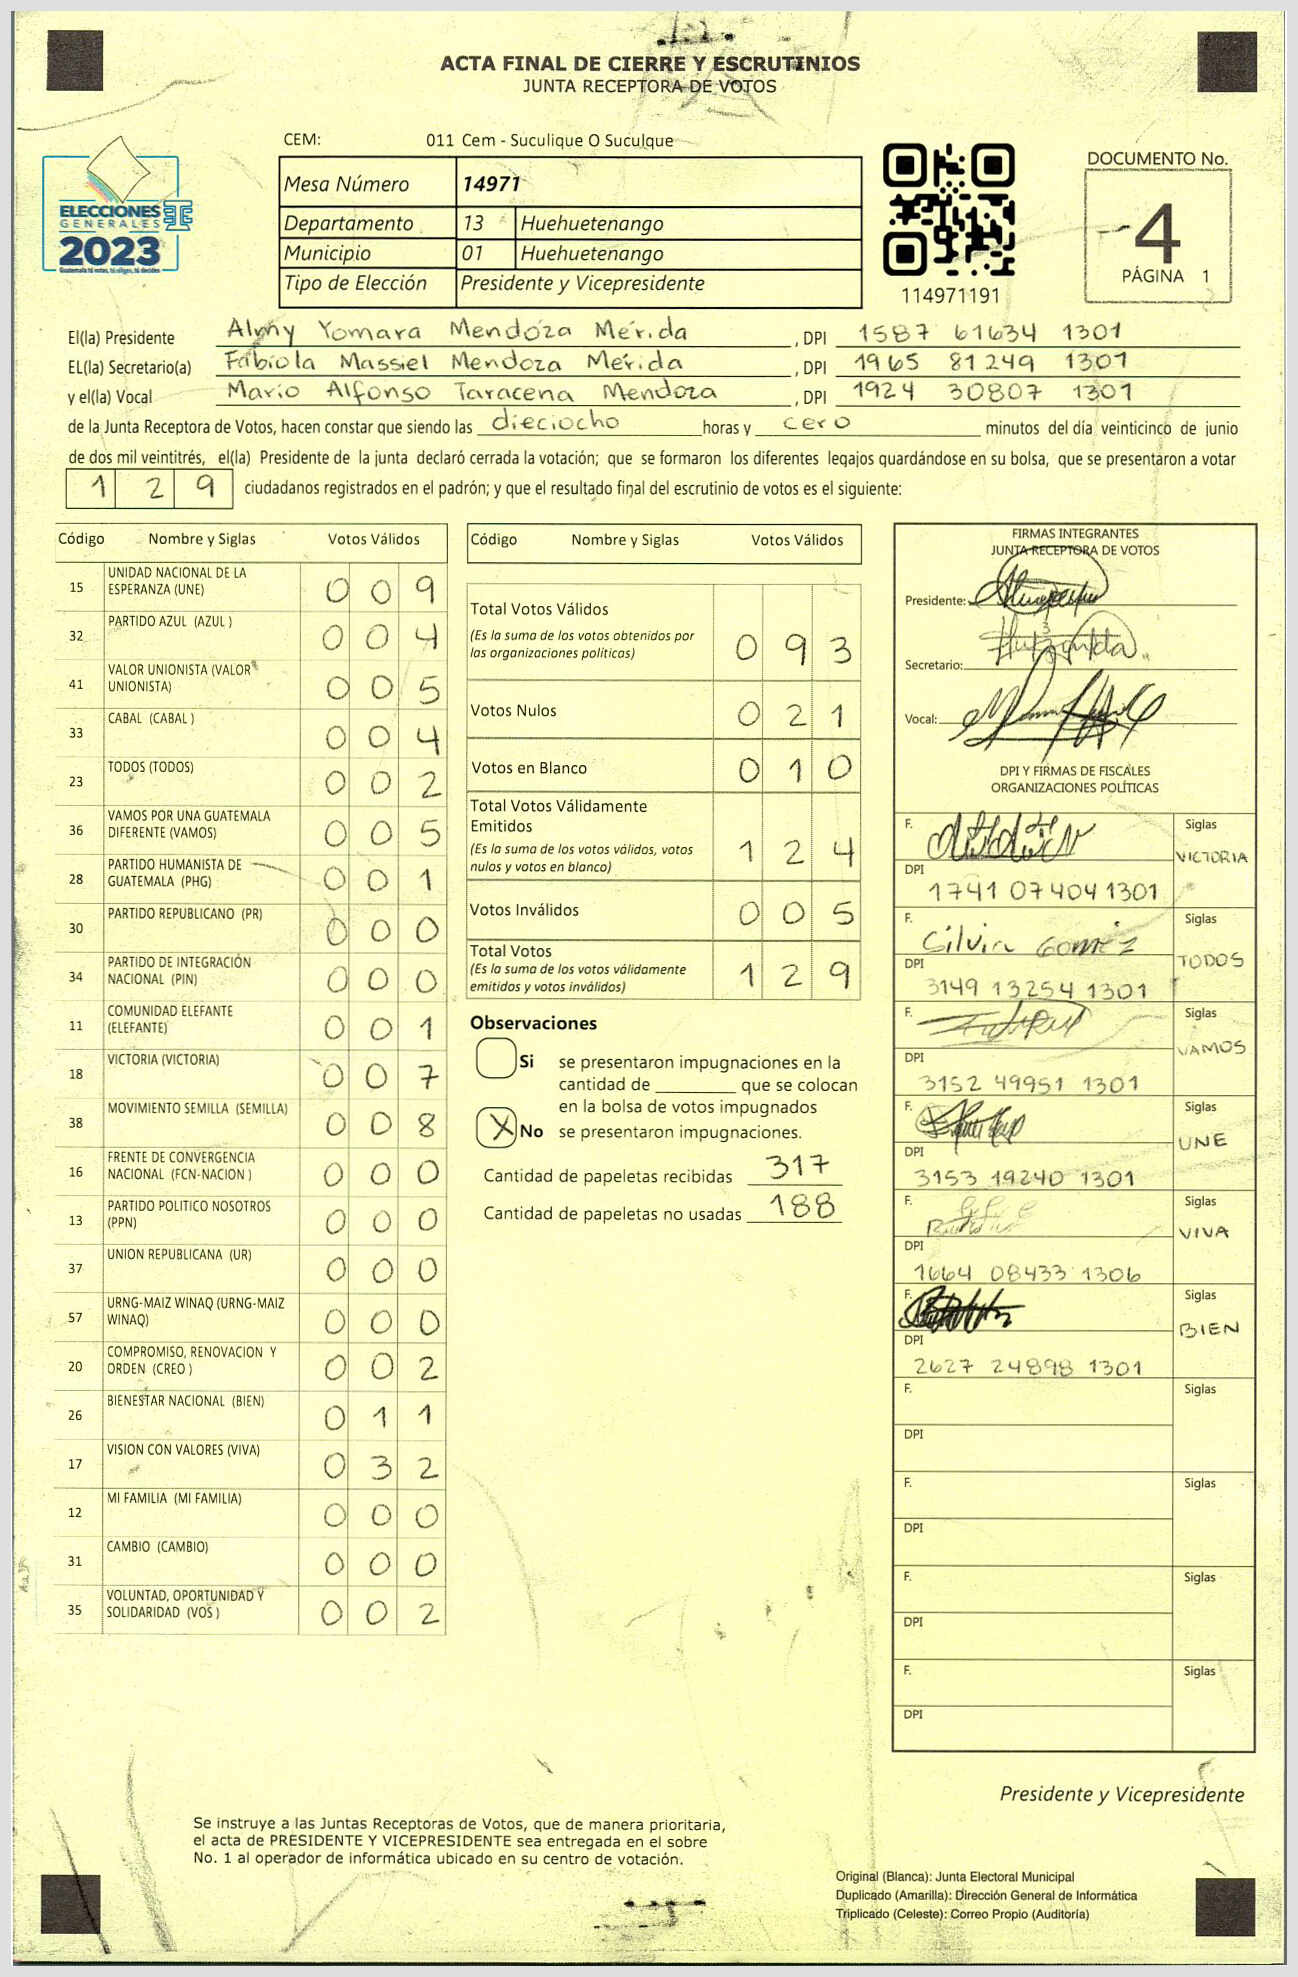 ACTA FINAL DE CIERRE Y ESCRUTINIOS
JUNTA RECEPTORA DE VOTOS
CEM: 011 Cem - Suculique O Suculque
Mesa Número 14971
Departamento 13 Huehuetenango
Municipio 01 Huehuetenango
Tipo de Elección Presidente y Vicepresidente
ELECCIONES
GENERALES
2023
Guatemala tú votas, tú eliges, tú decides
114971191
DOCUMENTO No.
4
PÁGINA 1
El(la) Presidente Almy Yomara Mendoza Mérida , DPI 1587 61634 1301
EL(la) Secretario(a) Fabiola Massiel Mendoza Mérida , DPI 1965 81249 1301
y el(la) Vocal Mario Alfonso Taracena Mendoza , DPI 1924 30807 1301
de la Junta Receptora de Votos, hacen constar que siendo las dieciocho horas y cero minutos del día veinticinco de junio
de dos mil veintitrés, el(la) Presidente de la junta declaró cerrada la votación; que se formaron los diferentes legajos quardándose en su bolsa, que se presentaron a votar
1 2 9 ciudadanos registrados en el padrón; y que el resultado final del escrutinio de votos es el siguiente:
Código Nombre y Siglas Votos Válidos
15 UNIDAD NACIONAL DE LA ESPERANZA (UNE) 0 0 9
32 PARTIDO AZUL (AZUL ) 0 0 4
41 VALOR UNIONISTA (VALOR UNIONISTA) 0 0 5
33 CABAL (CABAL ) 0 0 4
23 TODOS (TODOS) 0 0 2
36 VAMOS POR UNA GUATEMALA DIFERENTE (VAMOS) 0 0 5
28 PARTIDO HUMANISTA DE GUATEMALA (PHG) 0 0 1
30 PARTIDO REPUBLICANO (PR) 0 0 0
34 PARTIDO DE INTEGRACIÓN NACIONAL (PIN) 0 0 0
11 COMUNIDAD ELEFANTE (ELEFANTE) 0 0 1
18 VICTORIA (VICTORIA) 0 0 7
38 MOVIMIENTO SEMILLA (SEMILLA) 0 0 8
16 FRENTE DE CONVERGENCIA NACIONAL (FCN-NACION ) 0 0 0
13 PARTIDO POLITICO NOSOTROS (PPN) 0 0 0
37 UNION REPUBLICANA (UR) 0 0 0
57 URNG-MAIZ WINAQ (URNG-MAIZ WINAQ) 0 0 0
20 COMPROMISO, RENOVACION Y ORDEN (CREO ) 0 0 2
26 BIENESTAR NACIONAL (BIEN) 0 1 1
17 VISION CON VALORES (VIVA) 0 3 2
12 MI FAMILIA (MI FAMILIA) 0 0 0
31 CAMBIO (CAMBIO) 0 0 0
35 VOLUNTAD, OPORTUNIDAD Y SOLIDARIDAD (VOS ) 0 0 2
Código Nombre y Siglas Votos Válidos
Total Votos Válidos
(Es la suma de los votos obtenidos por
las organizaciones políticas) 0 9 3
Votos Nulos 0 2 1
Votos en Blanco 0 1 0
Total Votos Válidamente
Emitidos
(Es la suma de los votos válidos, votos
nulos y votos en blanco) 1 2 4
Votos Inválidos 0 0 5
Total Votos
(Es la suma de los votos válidamente
emitidos y votos inválidos) 1 2 9
Observaciones
Si se presentaron impugnaciones en la
cantidad de ________ que se colocan
en la bolsa de votos impugnados
X No se presentaron impugnaciones.
Cantidad de papeletas recibidas 317
Cantidad de papeletas no usadas 188
FIRMAS INTEGRANTES
JUNTA RECEPTORA DE VOTOS
Presidente:
Secretario:
Vocal:
DPI Y FIRMAS DE FISCALES
ORGANIZACIONES POLÍTICAS
F. Siglas
VICTORIA
DPI
1741 07404 1301
F. Silvia Gomez Siglas
TODOS
DPI
3149 13254 1301
F. Siglas
VAMOS
DPI
3152 49951 1301
F. Siglas
UNE
DPI
3153 19240 1301
F. Siglas
VIVA
DPI
1664 08433 1306
F. Siglas
BIEN
DPI
2627 24898 1301
F. Siglas
DPI
F. Siglas
DPI
F. Siglas
DPI
F. Siglas
DPI
Presidente y Vicepresidente
Se instruye a las Juntas Receptoras de Votos, que de manera prioritaria,
el acta de PRESIDENTE Y VICEPRESIDENTE sea entregada en el sobre
No. 1 al operador de informática ubicado en su centro de votación.
Original (Blanca): Junta Electoral Municipal
Duplicado (Amarilla): Dirección General de Informática
Triplicado (Celeste): Correo Propio (Auditoría)